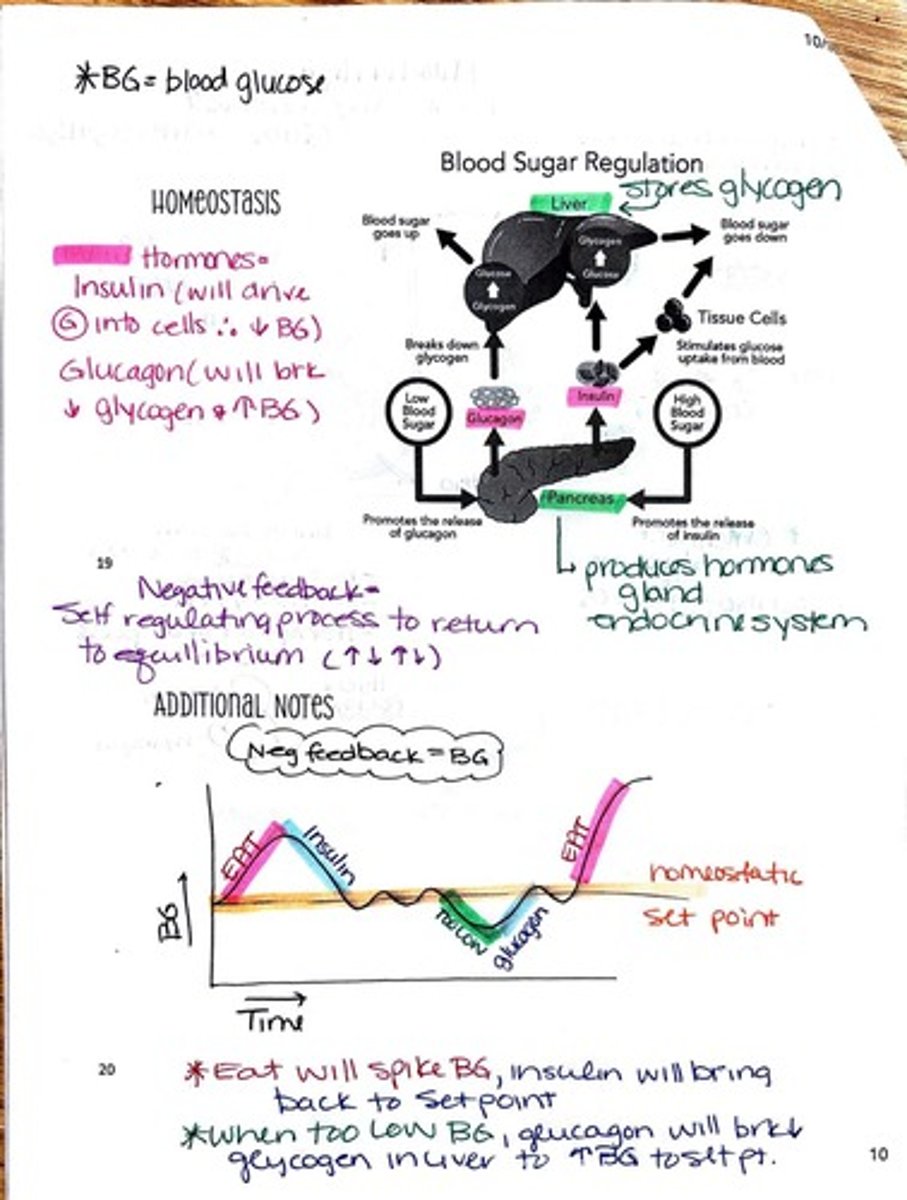 10/
*BG = blood glucose
Blood Sugar Regulation
HOMEOSTASIS
Liver
stores glycogen
Blood sugar
goes up
Glycogen
Glucose
Blood sugar
goes down
Glucose
Glycogen
Hormones=
Insulin (will drive
Ⓖ into cells ∴ ↓ BG)
Glucagon (will brk
↓ glycogen & ↑ BG)
Tissue Cells
Stimulates glucose
uptake from blood
Breaks down
glycogen
Low
Blood
Sugar
Glucagon
Insulin
High
Blood
Sugar
Pancreas
Promotes the release
of glucagon
Promotes the release
of insulin
↳ produces hormones
gland
endocrine system
19
Negative feedback=
Self regulating process to return
to equillibrium (↑↓↑↓)
ADDITIONAL NOTES
Neg feedback = BG
EAT
Insulin
Too LOW
glucagon
EAT
homeostatic
set point
BG
Time
20
*Eat will spike BG, insulin will bring
back to setpoint
*When too low BG, glucagon will brk↓
glycogen in liver to ↑ BG to set pt.
10